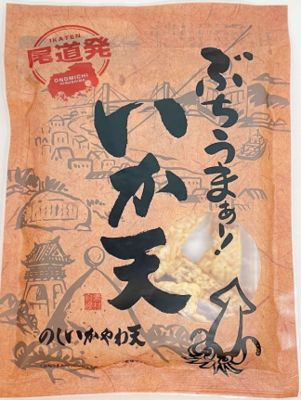 IKATEN
尾道発
ONOMICHI
HIROSHIMA
ぶちうまぁー!
いか天
のしいかやわ天